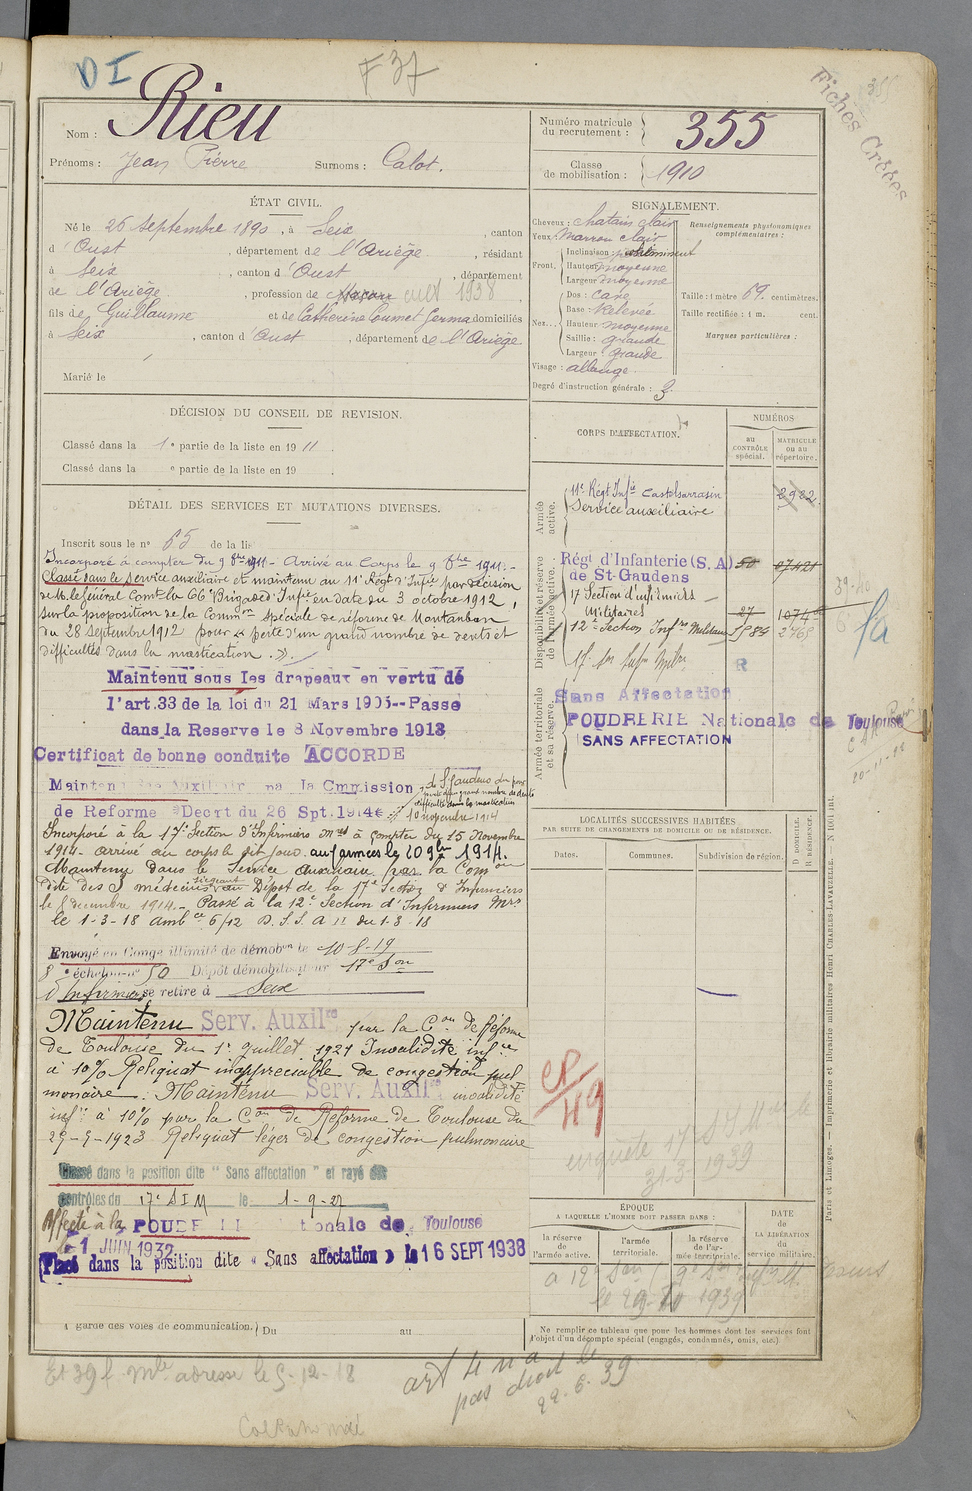 DI
F 37
Fiches Créées
Nom : Rieu
Prénoms : Jean Pierre Surnoms : Calot.
Numéro matricule du recrutement : 355
Classe de mobilisation : 1910
ÉTAT CIVIL.
Né le 26 Septembre 1890, à Seix, canton
d'Oust, département de l'Ariège, résidant
à Seix, canton d'Oust, département
de l'Ariège, profession de cult 1938
fils de Guillaume et de Catherine Coumet Germa domiciliés
à Seix, canton d'Oust, département de l'Ariège
Marié le
SIGNALEMENT.
Cheveux : chatain clair
Yeux : Marron clair
Front. Inclinaison :
Hauteur moyenne
Largeur moyenne
Nez... Dos : cave
Base : Relevée
Hauteur moyenne
Saillie : grande
Largeur : grande
Visage : allongé.
Renseignements physionomiques complémentaires :
Taille : 1 mètre 69. centimètres.
Taille rectifiée : 1 m. cent.
Marques particulières :
Degré d'instruction générale : 3
DÉCISION DU CONSEIL DE REVISION.
Classé dans la 1e partie de la liste en 1911.
Classé dans la e partie de la liste en 19
DÉTAIL DES SERVICES ET MUTATIONS DIVERSES.
Inscrit sous le no 65 de la lis
Incorporé à compter du 9 8bre 1911.- Arrivé au Corps le 9 8bre 1911.-
Classé dans le service auxiliaire et maintenu au 11e Régt d'Infie par décision
de M. le Général Comt la 66e Brigade d'Infie en date du 3 octobre 1912,
sur la proposition de la Common spéciale de réforme de Montauban
du 28 septembre 1912 pour « perte d'un grand nombre de dents et
difficultés dans la mastication. ».
Maintenu sous les drapeaux en vertu de
l'art.33 de la loi du 21 Mars 1905--Passé
dans la Reserve le 8 Novembre 1913
Certificat de bonne conduite ACCORDE
Mainten Auxiliair pa la Cmmission de St Gaudens du pour
perte d'un grand nombre de dents
difficulté dans la mastication
de Reforme Decrt du 26 Spt.1914 10 novembre 1914
Incorporé à la 17e Section d'Infirmiers mres à compter du 15 Novembre
1914 - arrivé au corps le dit jour. aux armées le 20 9bre 1914.
Maintenu dans le Service Auxiliaire par la Comon
dite des 3 médecins siégeant au Dépot de la 17e Secton d'Infirmiers
le 8 decembre 1914.- Passé à la 12e Section d'Infirmiers Mres
le 1-3-18 ambce 6/12 D.S.S.A 12 du 1-3-18
Envoyé en Congé illimité de démobon le 10-8-19
8e échelon no 50 Dépôt démobilisateur 17e Son
d'Infirmiers se retire à Seix
Maintenu Serv. Auxilre par la Con de Réforme
de Toulouse du 1er Juillet 1921 Invalidité infre
à 10% Reliquat inappreciable de congestion pul
monaire. Maintenu Serv. Auxilre invalidité
infre à 10% par la Con de Réforme de Toulouse du
29-5-1923 Reliquat léger de congestion pulmonaire
Classé dans la position dite "Sans affectation" et rayé des
contrôles du 17e SIM le 1-9-27
Affecté à la POUDRERIE Nationale de Toulouse
le 1 JUIN 1932
Placé dans la position dite « Sans affectation » le 16 SEPT 1938
à garde des voies de communication. Du au
CORPS D'AFFECTATION.
NUMÉROS
au CONTRÔLE spécial.
MATRICULE ou au répertoire.
Armée active.
11e Régt Infie Castelsarrasin 2922
Service auxiliaire
Disponibilité et réserve de l'armée active.
Régt d'Infanterie (S.A) 50 07421
de St-Gaudens
17 Section d'infirmiers
Militaires 27 1074
12e Section Infres Militaires 1984 2768
17e Son Infirs Milres
R
39-40
Armée territoriale et sa réserve.
Sans Affectation
POUDRERIE Nationale de Toulouse
SANS AFFECTATION
20-11-22
LOCALITÉS SUCCESSIVES HABITÉES
PAR SUITE DE CHANGEMENTS DE DOMICILE OU DE RÉSIDENCE.
Dates. Communes. Subdivision de région.
D DOMICILE. R RÉSIDENCE.
CP/49
enquête 17e SIM le
31-3-1939
ÉPOQUE
A LAQUELLE L'HOMME DOIT PASSER DANS :
la réserve de l'armée active.
l'armée territoriale.
la réserve de l'armée territoriale.
DATE DE LA LIBÉRATION du service militaire.
Ne remplir ce tableau que pour les hommes dont les services font
l'objet d'un décompte spécial (engagés, condamnés, omis, etc.).
Paris et Limoges. — Imprimerie et librairie militaires Henri CHARLES-LAVAUZELLE.
Et 39 f. mle adressé le 5-12-18
pas droit le
22-6-39